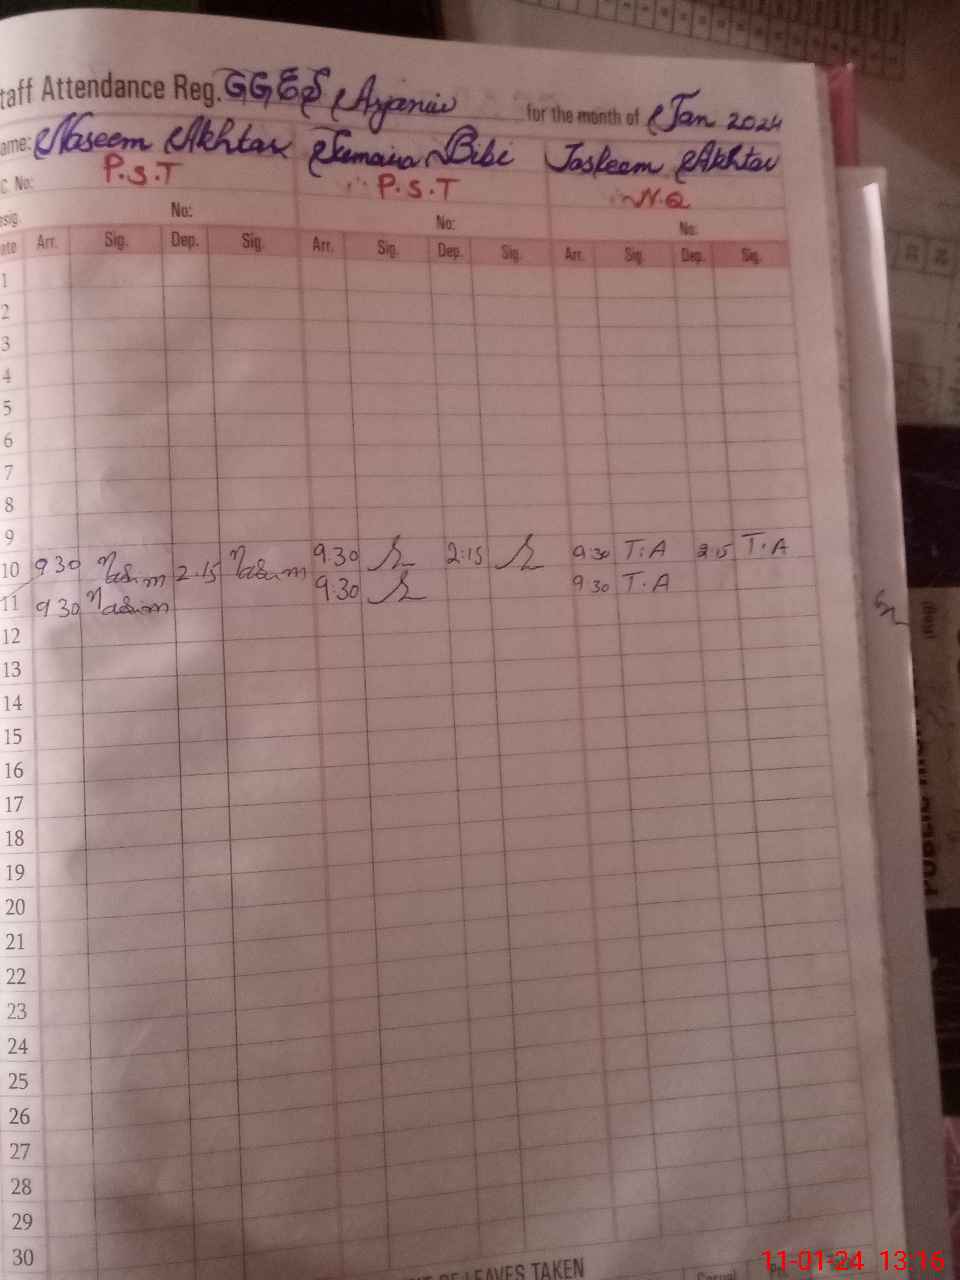 taff Attendance Reg. GGES Arjania for the month of Jan 2024
ame: Naseem Akhtar Sumaira Bibi Taskeem Akhtar
C. No: P.S.T P.S.T N.Q
esig. No: No: No:
ate Arr. Sig. Dep. Sig. Arr. Sig. Dep. Sig. Arr. Sig. Dep. Sig.
1
2
3
4
5
6
7
8
9
10 930 Nasim 2.15 Nasim 9.30 2:15 930 T.A 2.15 T.A
11 930 Nasim 9.30 930 T.A
12
13
14
15
16
17
18
19
20
21
22
23
24
25
26
27
28
29
30
LEAVES TAKEN
Casual
11-01-24 13:16